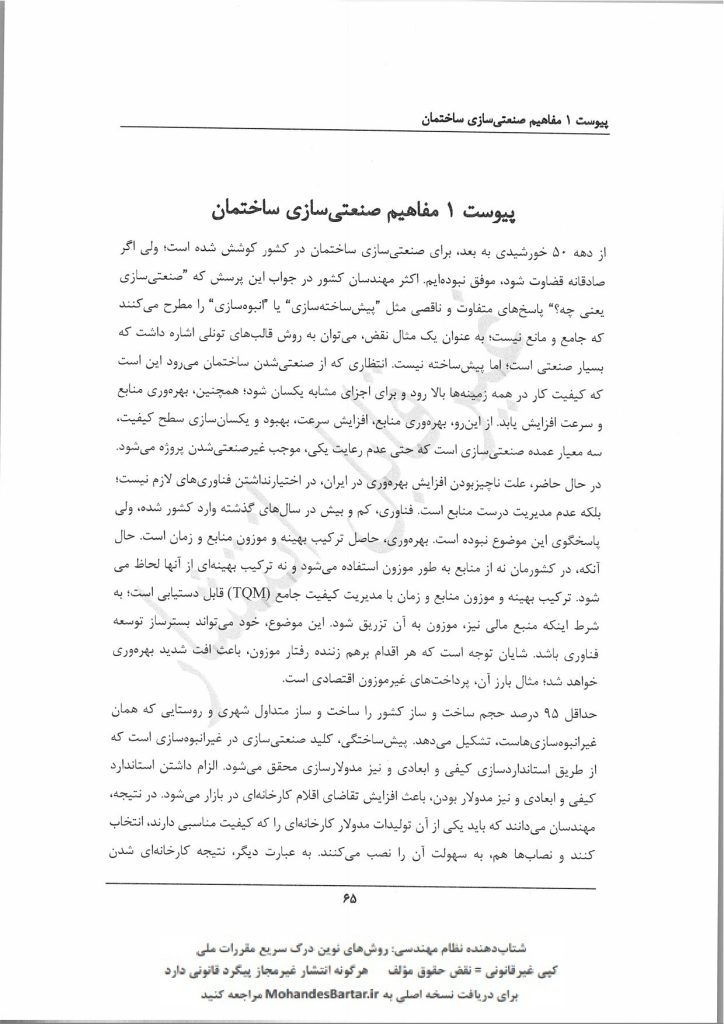 پیوست ۱ مفاهیم صنعتی‌سازی ساختمان
پیوست ۱ مفاهیم صنعتی‌سازی ساختمان
از دهه ۵۰ خورشیدی به بعد، برای صنعتی‌سازی ساختمان در کشور کوشش شده است؛ ولی اگر
صادقانه قضاوت شود، موفق نبوده‌ایم. اکثر مهندسان کشور در جواب این پرسش که "صنعتی‌سازی
یعنی چه؟" پاسخ‌های متفاوت و ناقصی مثل "پیش‌ساخته‌سازی" یا "انبوه‌سازی" را مطرح می‌کنند
که جامع و مانع نیست؛ به عنوان یک مثال نقض، می‌توان به روش قالب‌های تونلی اشاره داشت که
بسیار صنعتی است؛ اما پیش‌ساخته نیست. انتظاری که از صنعتی‌شدن ساختمان می‌رود این است
که کیفیت کار در همه زمینه‌ها بالا رود و برای اجزای مشابه یکسان شود؛ همچنین، بهره‌وری منابع
و سرعت افزایش یابد. از این‌رو، بهره‌وری منابع، افزایش سرعت، بهبود و یکسان‌سازی سطح کیفیت،
سه معیار عمده صنعتی‌سازی است که حتی عدم رعایت یکی، موجب غیرصنعتی‌شدن پروژه می‌شود.
در حال حاضر، علت ناچیزبودن افزایش بهره‌وری در ایران، در اختیارنداشتن فناوری‌های لازم نیست؛
بلکه عدم مدیریت درست منابع است. فناوری، کم و بیش در سال‌های گذشته وارد کشور شده، ولی
پاسخگوی این موضوع نبوده است. بهره‌وری، حاصل ترکیب بهینه و موزون منابع و زمان است. حال
آنکه، در کشورمان نه از منابع به طور موزون استفاده می‌شود و نه ترکیب بهینه‌ای از آنها لحاظ می
شود. ترکیب بهینه و موزون منابع و زمان با مدیریت کیفیت جامع (TQM) قابل دستیابی است؛ به
شرط اینکه منبع مالی نیز، موزون به آن تزریق شود. این موضوع، خود می‌تواند بسترساز توسعه
فناوری باشد. شایان توجه است که هر اقدام برهم زننده رفتار موزون، باعث افت شدید بهره‌وری
خواهد شد؛ مثال بارز آن، پرداخت‌های غیرموزون اقتصادی است.
حداقل ۹۵ درصد حجم ساخت و ساز کشور را ساخت و ساز متداول شهری و روستایی که همان
غیرانبوه‌سازی‌هاست، تشکیل می‌دهد. پیش‌ساختگی، کلید صنعتی‌سازی در غیرانبوه‌سازی است که
از طریق استانداردسازی کیفی و ابعادی و نیز مدولارسازی محقق می‌شود. الزام داشتن استاندارد
کیفی و ابعادی و نیز مدولار بودن، باعث افزایش تقاضای اقلام کارخانه‌ای در بازار می‌شود. در نتیجه،
مهندسان می‌دانند که باید یکی از آن تولیدات مدولار کارخانه‌ای را که کیفیت مناسبی دارند، انتخاب
کنند و نصاب‌ها هم، به سهولت آن را نصب می‌کنند. به عبارت دیگر، نتیجه کارخانه‌ای شدن
غیر قابل انتشار
۶۵
شتاب‌دهنده نظام مهندسی: روش‌های نوین درک سریع مقررات ملی
کپی غیرقانونی = نقض حقوق مؤلف هرگونه انتشار غیرمجاز پیگرد قانونی دارد
برای دریافت نسخه اصلی به MohandesBartar.ir مراجعه کنید